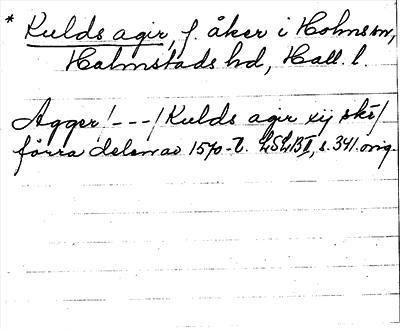 * Kulds agir, f. åker i Holms sn,
Halmstads hd, Hall. l.
Agger/---/Kulds agir xij skł/
förra delen av 1570-t. LSLB II, s. 341. orig.